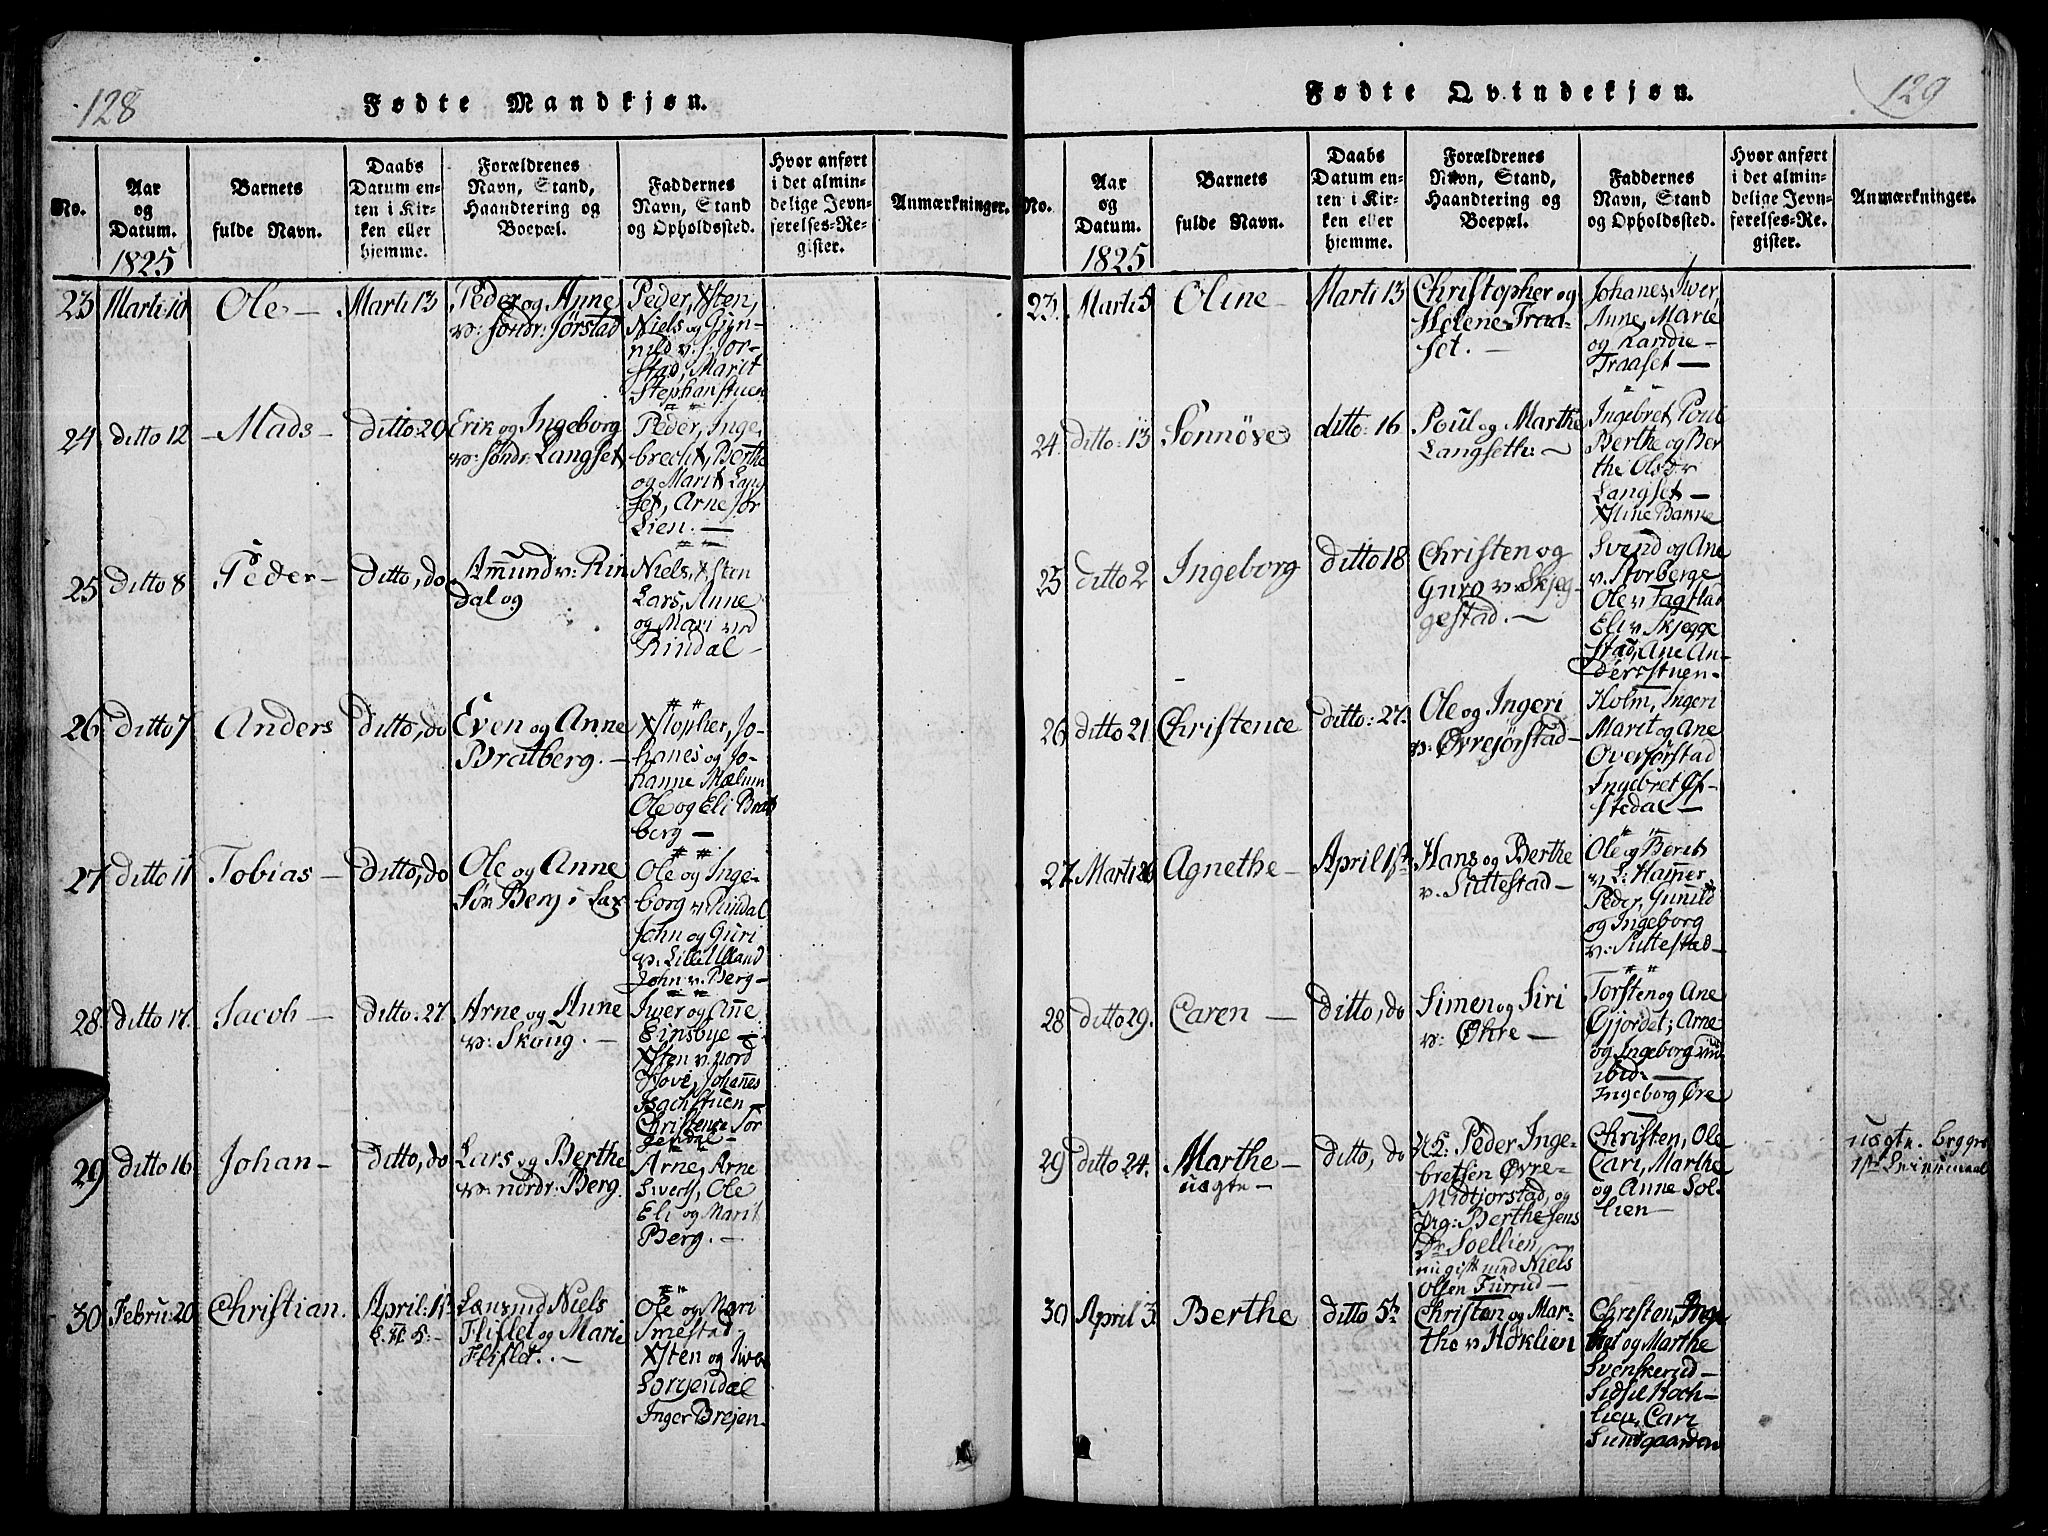 128
Fødte Mandkjøn.
No.
Aar
og
Datum.
1825
Barnets
fulde Navn.
Daabs
Datum en-
ten i Kir-
ken eller
hjemme.
Forældrenes
Navn, Stand,
Haandtering og
Boepæl.
Faddernes
Navn, Stand
og Opholdssted.
Hvor anført
i det almin-
delige Jevn-
førelses-Re-
gister.
Anmærkninger.
23
Marti: 10
Ole —
Marti 13
Peder og Anne
v: søndr: Jørstad
Peder, Xsten,
Niels og Gun-
nild v: s: Jør-
stad, Marit
Stephanstuen
24
ditto 12
Mads —
ditto: 20
Erik og Ingeborg
v: søndr: Langset
Peder, Inge-
brecht, Berthe
og Marit Lang
set, Arne
Lien. —
25
ditto 8
Peder —
ditto, do
Amund v: Rin
dal og
Niels, Xsten
Lars, Anne
og Mari ved
Rindal —
26
ditto 7
Anders
ditto, do
Even og Anne
Bratberg. —
Xstopher, Jo-
hanes og Jo-
hanne Mælum
Ole og Eli Brat
berg —
27
ditto 11
Tobias —
ditto, do
Ole og Anne
Sør Berg i Lax
Ole og Inge-
borg v: Rindal
John og Guri
v: Litel Ulland
John v: Berg —
28
ditto 17.
Jacob —
ditto: 27.
Arne og Anne
v: Skoug. —
Iwer og Anne
Einsbye —
Xsten v: nord
Hove, Johannes
Bachstuen —
Christence Sor
gendal —
29
ditto 16
Johan —
ditto, do
Lars og Berthe
v: nordr: Berg.
Arne, Arne
Sivert, Ole
Eli og Marit
Berg. —
30
Febru: 20
Christian.
April: 1st
Niels
Fliflet og Marie
Fliflet. —
Ole og Mari
Smestad
Xsten og Iver
Sorgendal
Inger Brejen —
129
Fødte Qvindekjøn.
No.
Aar
og
Datum.
1825
Barnets
fulde Navn.
Daabs
Datum en-
ten i Kir-
ken eller
hjemme.
Forældrenes
Navn, Stand,
Haandtering og
Boepæl.
Faddernes
Navn, Stand
og Opholdssted.
Hvor anført
i det almin-
delige Jevn-
førelses-Re-
gister.
Anmærkninger.
23.
Marti 5
Oline —
Marti 13
Christopher og
Helene Traa-
set. —
Johanes, Iver,
Anne, Marie
og Randie —
Traaset —
24.
ditto: 13
Sønnøve
ditto: 16
Poul og Marthe
Langsette —
Ingebret, Poul
Berthe og Ber
the Olsdr
Langset —
Xstine Banne
25
ditto 2
Ingeborg
ditto 18
Christen og
Guro v: Skjeg-
gestad. —
Svend og Ane
v. Storberge
Ole v Fagstad
Eli v Skjegge
stad, Ane An-
dersstuen —
26
ditto 21
Christence
ditto: 27.
Ole og Ingeri
v: Øvrejørstad —
Holm, Ingeri
Marit og Ane
Overjørstad
Ingebret Øf-
stedal —
27
Marti 26
Agnethe —
April 1ste
Hans og Berthe
v. Suttestad —
Ole og Berit
v: L: Hammer,
Peder, Gunild
og Ingeborg
v: Suttestad —
28
ditto 29.
Caren —
ditto, do
Simen og Siri
v: Øhre —
Torsten og Ane
Gjordet; Arne
og Ingeborg
ibid: —
Ingeborg Øre
29
ditto 24.
Marthe —
uægte —
ditto, do
Peder Inge-
bretsen Øvre-
Midtjorstad, og
Pig: Berthe Jens
Dr Soellien,
ugift med Niels
Olsen Furrud —
Christen, Ole
Cari, Marthe
og Anne Sol-
lien —
uægte. begges
1ste Leiermaal
30
April 3
Berthe
ditto 5te
Christen og Mar-
the v: Høklien
Christen, Inge
bret og Marthe
Svenskerud —
Sidsel Hoch-
lien, Cari
Sundgaarden